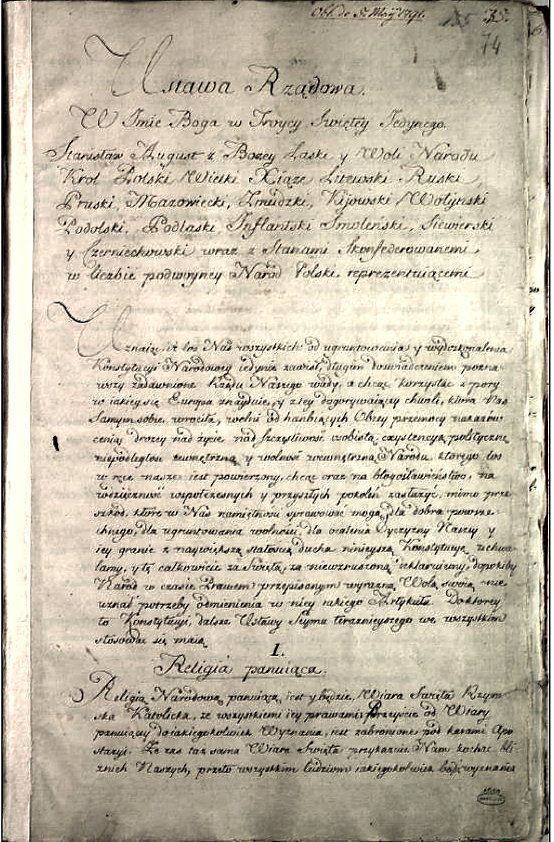 Obl. de 5. Maij 1791.
74
Ustawa Rządowa.
W Jmie Boga w Troycy Swiętey Jedynego.
Stanisław August z Bozey Łaski y Woli Narodu
Krol Polski Wielki Xiąże Litewski Ruski
Pruski, Mazowiecki, Zmudzki, Kijowski Wołynski
Podolski, Podlaski Jnflantski Smolenski, Siewierski
y Czerniechowski wraz z Stanami Skonfederowanemi
w liczbie podwoyney Naród Polski reprezentuiącemi
Uznaiąc, iż los Nas wszystkich od ugruntowania y wydoskonalenia
Konstytucyi Narodowey iedynie zawisł, długim doswiadczeniem pozna-
wszy zadawnione Rządu Naszego wady, a chcąc korzystać z pory
w iakiey się Europa znayduie, y z tey dogorywaiącey chwili, która Nas
samym sobie wrociła, wolni od hanbiących Obcey przemocy nakazów
ceniąc drożey nad życie, nad szczęśliwość osobistą, exystencyą polityczną
niepodległość zewnętrzną y wolność wewnętrzną Narodu, którego los
w ręce nasze iest powierzony, chcąc oraz na błogosławieństwo, na
wdzięczność współczesnych y przyszłych pokoleń zasłużyć, mimo prze-
szkód, które w Nas namiętności sprawować mogą, dla dobra powsze-
chnego, dla ugruntowania wolności, dla ocalenia Oyczyzny Naszey y
iey granic z naywiększą stałością ducha ninieyszą Konstytucyę uchwa-
lamy, y tę całkowicie za świętą, za niewzruszoną deklaruiemy, dopokiby
Naród w czasie Prawem przepisanym wyrazną Wolą swoią nie
uznał potrzeby odmienienia w niey iakiego Artykułu. Do ktorey
to Konstytucyi, dalsze Ustawy Seymu teraznieyszego we wszystkim
stosować się maią
I.
Religia panuiąca.
Religią Narodową panuiącą iest y będzie Wiara Swięta Rzym-
ska Katolicka, ze wszystkiemi iey prawami; Przeyście od Wiary
panuiącey do iakiegokolwiek Wyznania, iest zabronione pod karami Apo-
stazyi. Że zaś taż sama Wiara Swięta przykazuie Nam kochać bli-
znich Naszych, przeto wszystkim ludziom iakiegokolwiek bądź wyznania